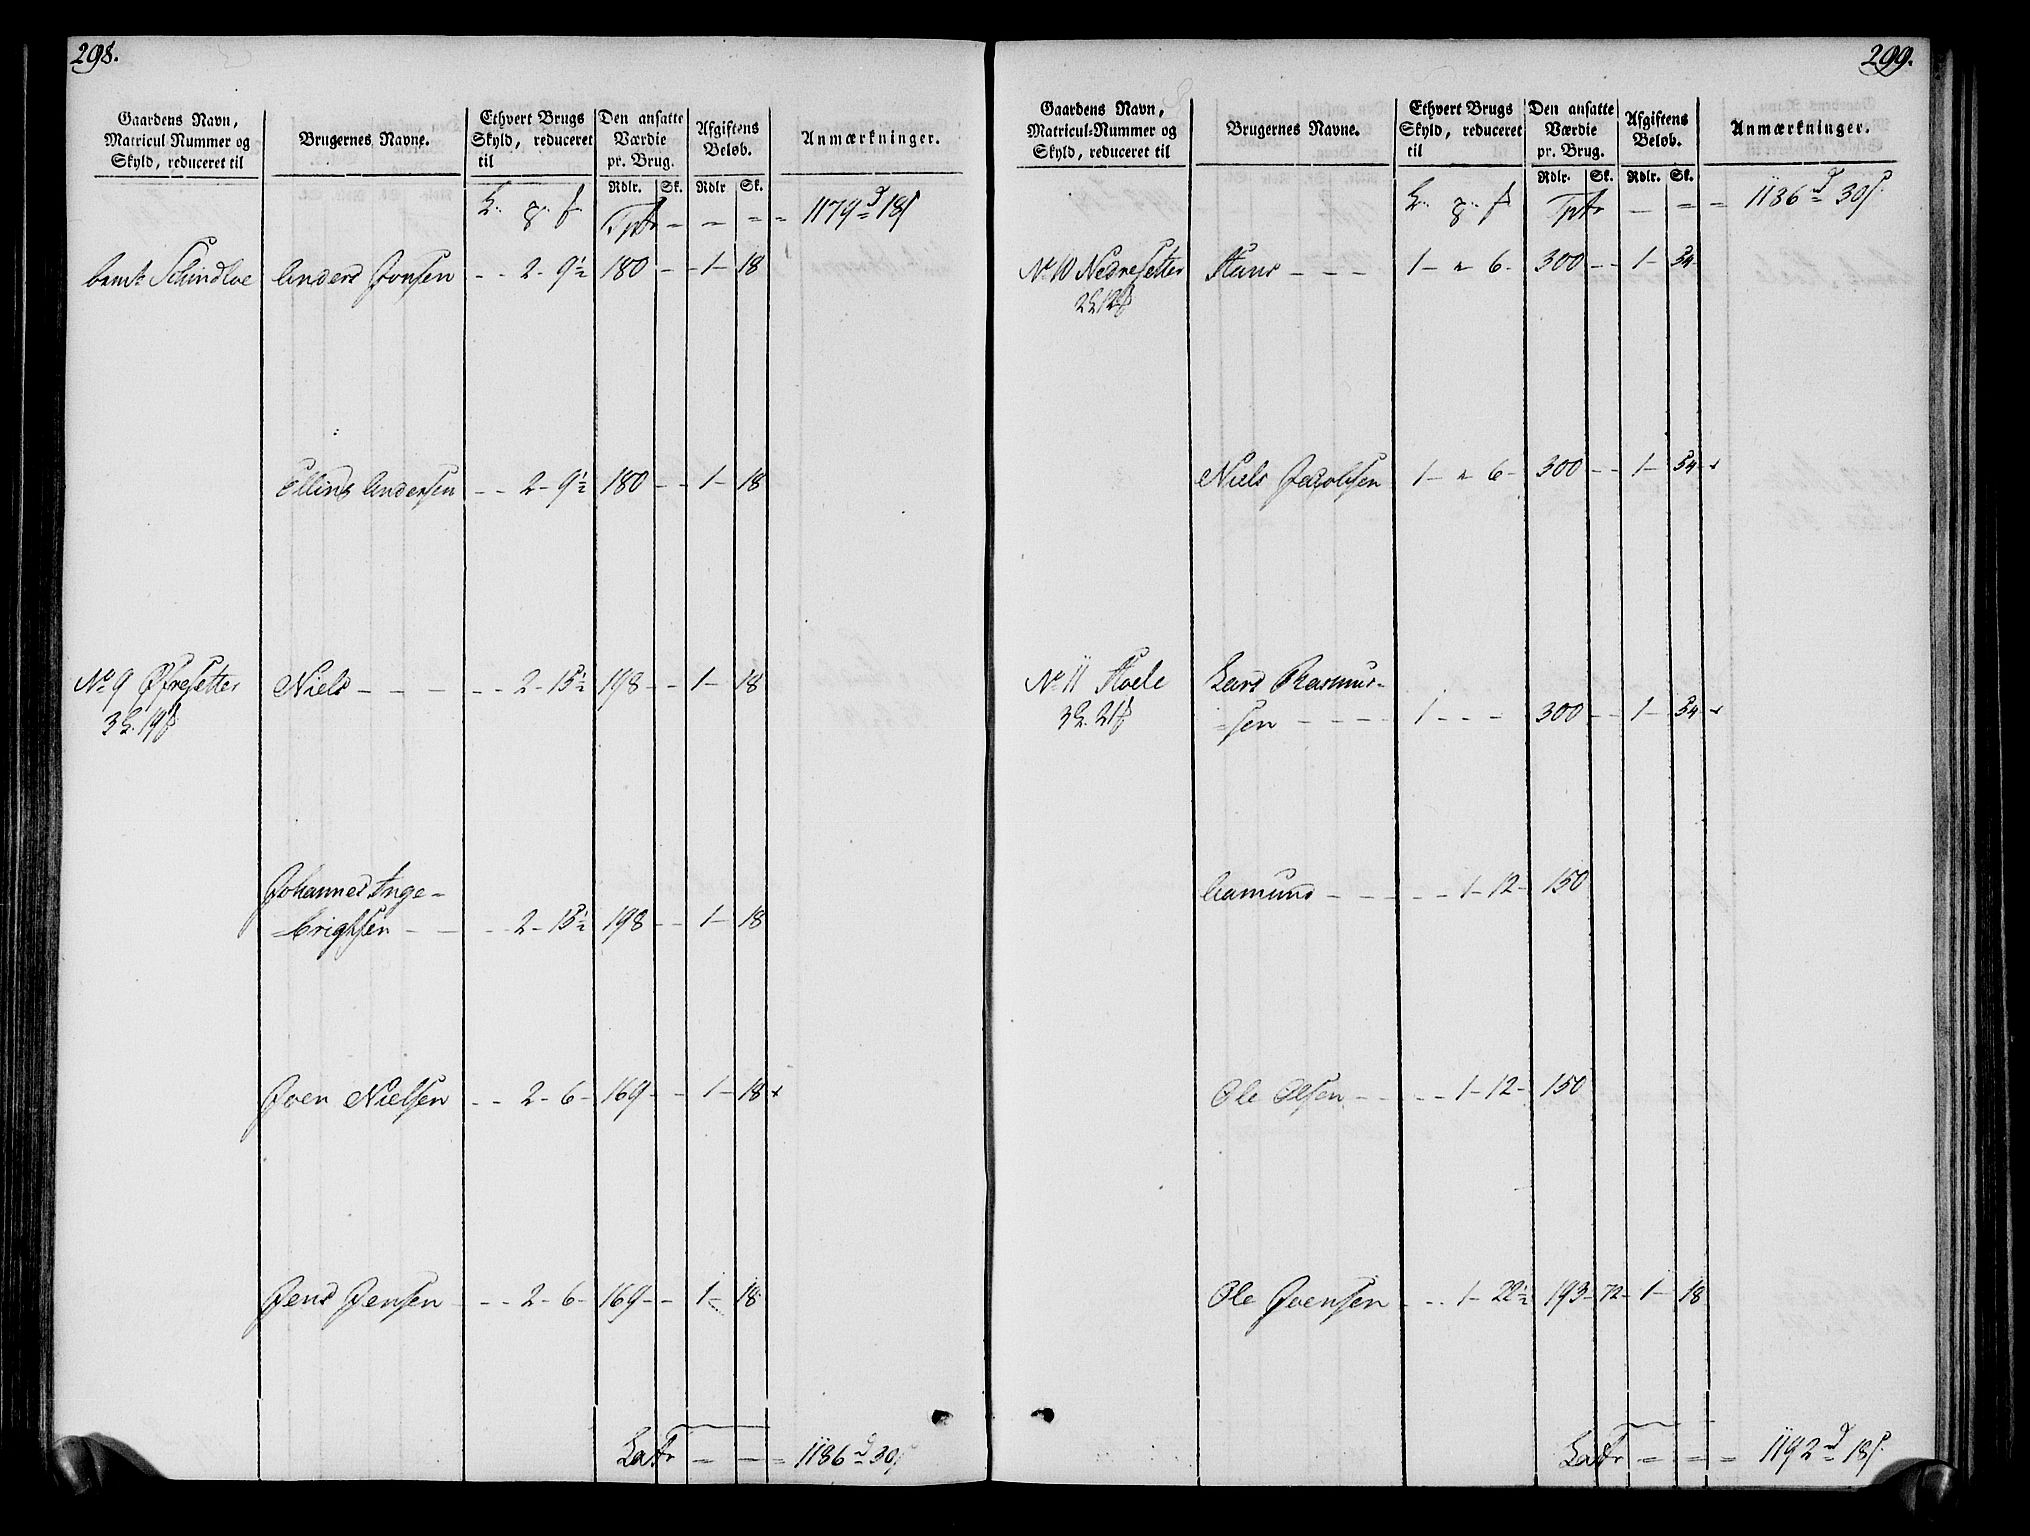 298.
Gaardens Navn,
Matricul Nummer og
Skyld, reduceret til
Brugernes Navne.
Ethvert Brugs
Skyld, reduceret
til
Den ansatte
Værdie
pr. Brug.
Rdlr. Sk.
Afgiftens
Beløb.
Rdlr Sk.
Anmærkninger.
Tptr - - = = 1179 d 18 s
Anders Jonsen - - 2 - 9½ 180 - - 1 - 18
Elling Andersen - - 2 - 9½ 180 - - 1 - 18
No 9 Øfresetter Niels - - - - - 2 - 15½ 198 - - 1 - 18
3 L. 19
Johannes Inge-
brigtsen - - - 2 - 15½ 198 - - 1 - 18
Joen Nielsen - - 2 - 6 - 169 - - 1 - 18
Jens Jensen - - - 2 - 6 - 169 - - 1 - 18
Latr - - = 1186 d 30 s
299.
Gaardens Navn,
Matricul-Nummer og
Skyld, reduceret til
Brugernes Navne.
Ethvert Brugs
Skyld, reduceret
til
Den ansatte
Værdie
pr. Brug.
Rdlr. Sk.
Afgiftens
Beløb.
Rdlr. Sk.
Anmærkninger.
Tptr - = = 1186 d 30 s
No 10 Nedresetter Hans - - - 1 - " 6 - 300 - - 1 - 54
2 L 12
Niels Jacobsen 1 - " 6 - 300 - - 1 - 54
No 11 Hoele Lars Rasmus-
3 L. 21 -sen - - - - 1 - - - 300 - - 1 - 54
Aamund - - - - - 1 - 12 - 150
Ole Olsen - - - - 1 - 12 - 150
Ole Joensen - - - 1 - 22½ 193 - 72 - 1 - 18
Latr = = = 1192 d 18 s